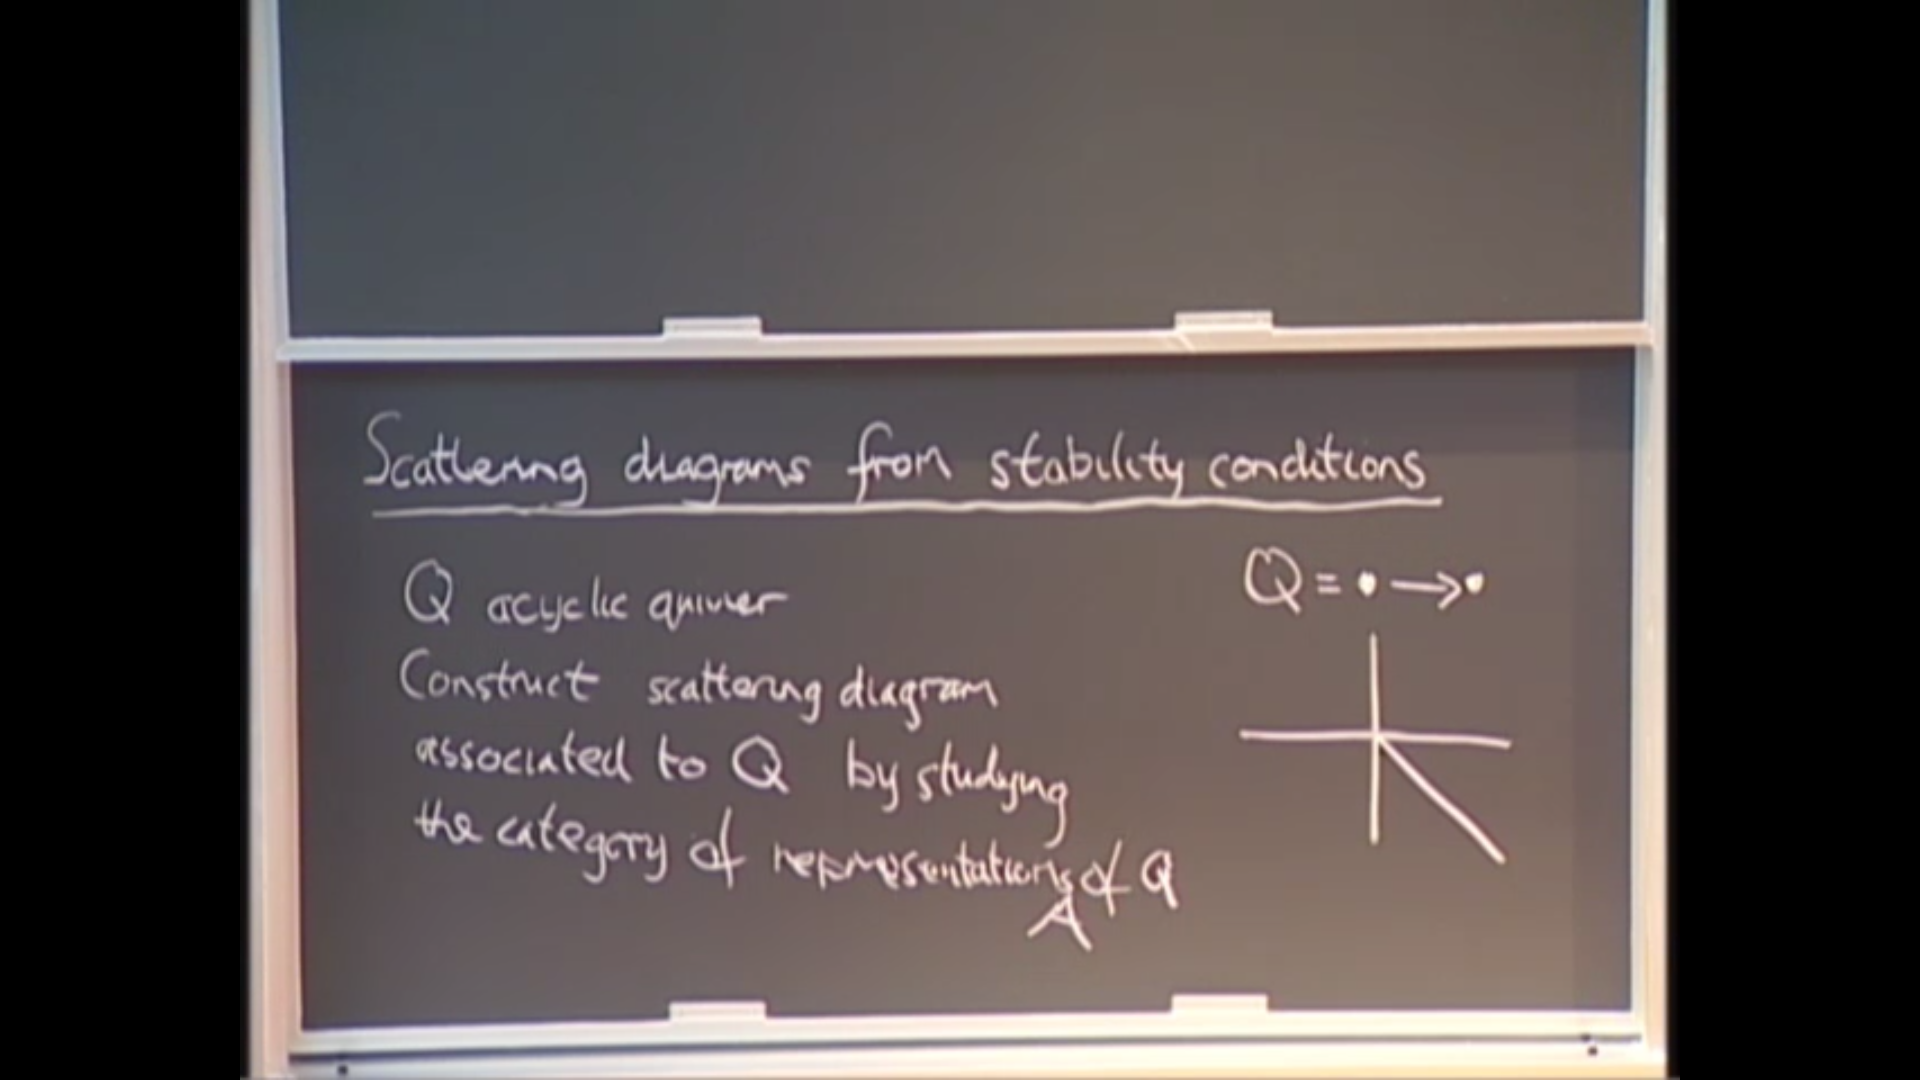 Scattering diagrams from stability conditions
Q acyclic quiver
Q = • → •
Construct scattering diagram
associated to Q by studying
the category of representations of Q
A